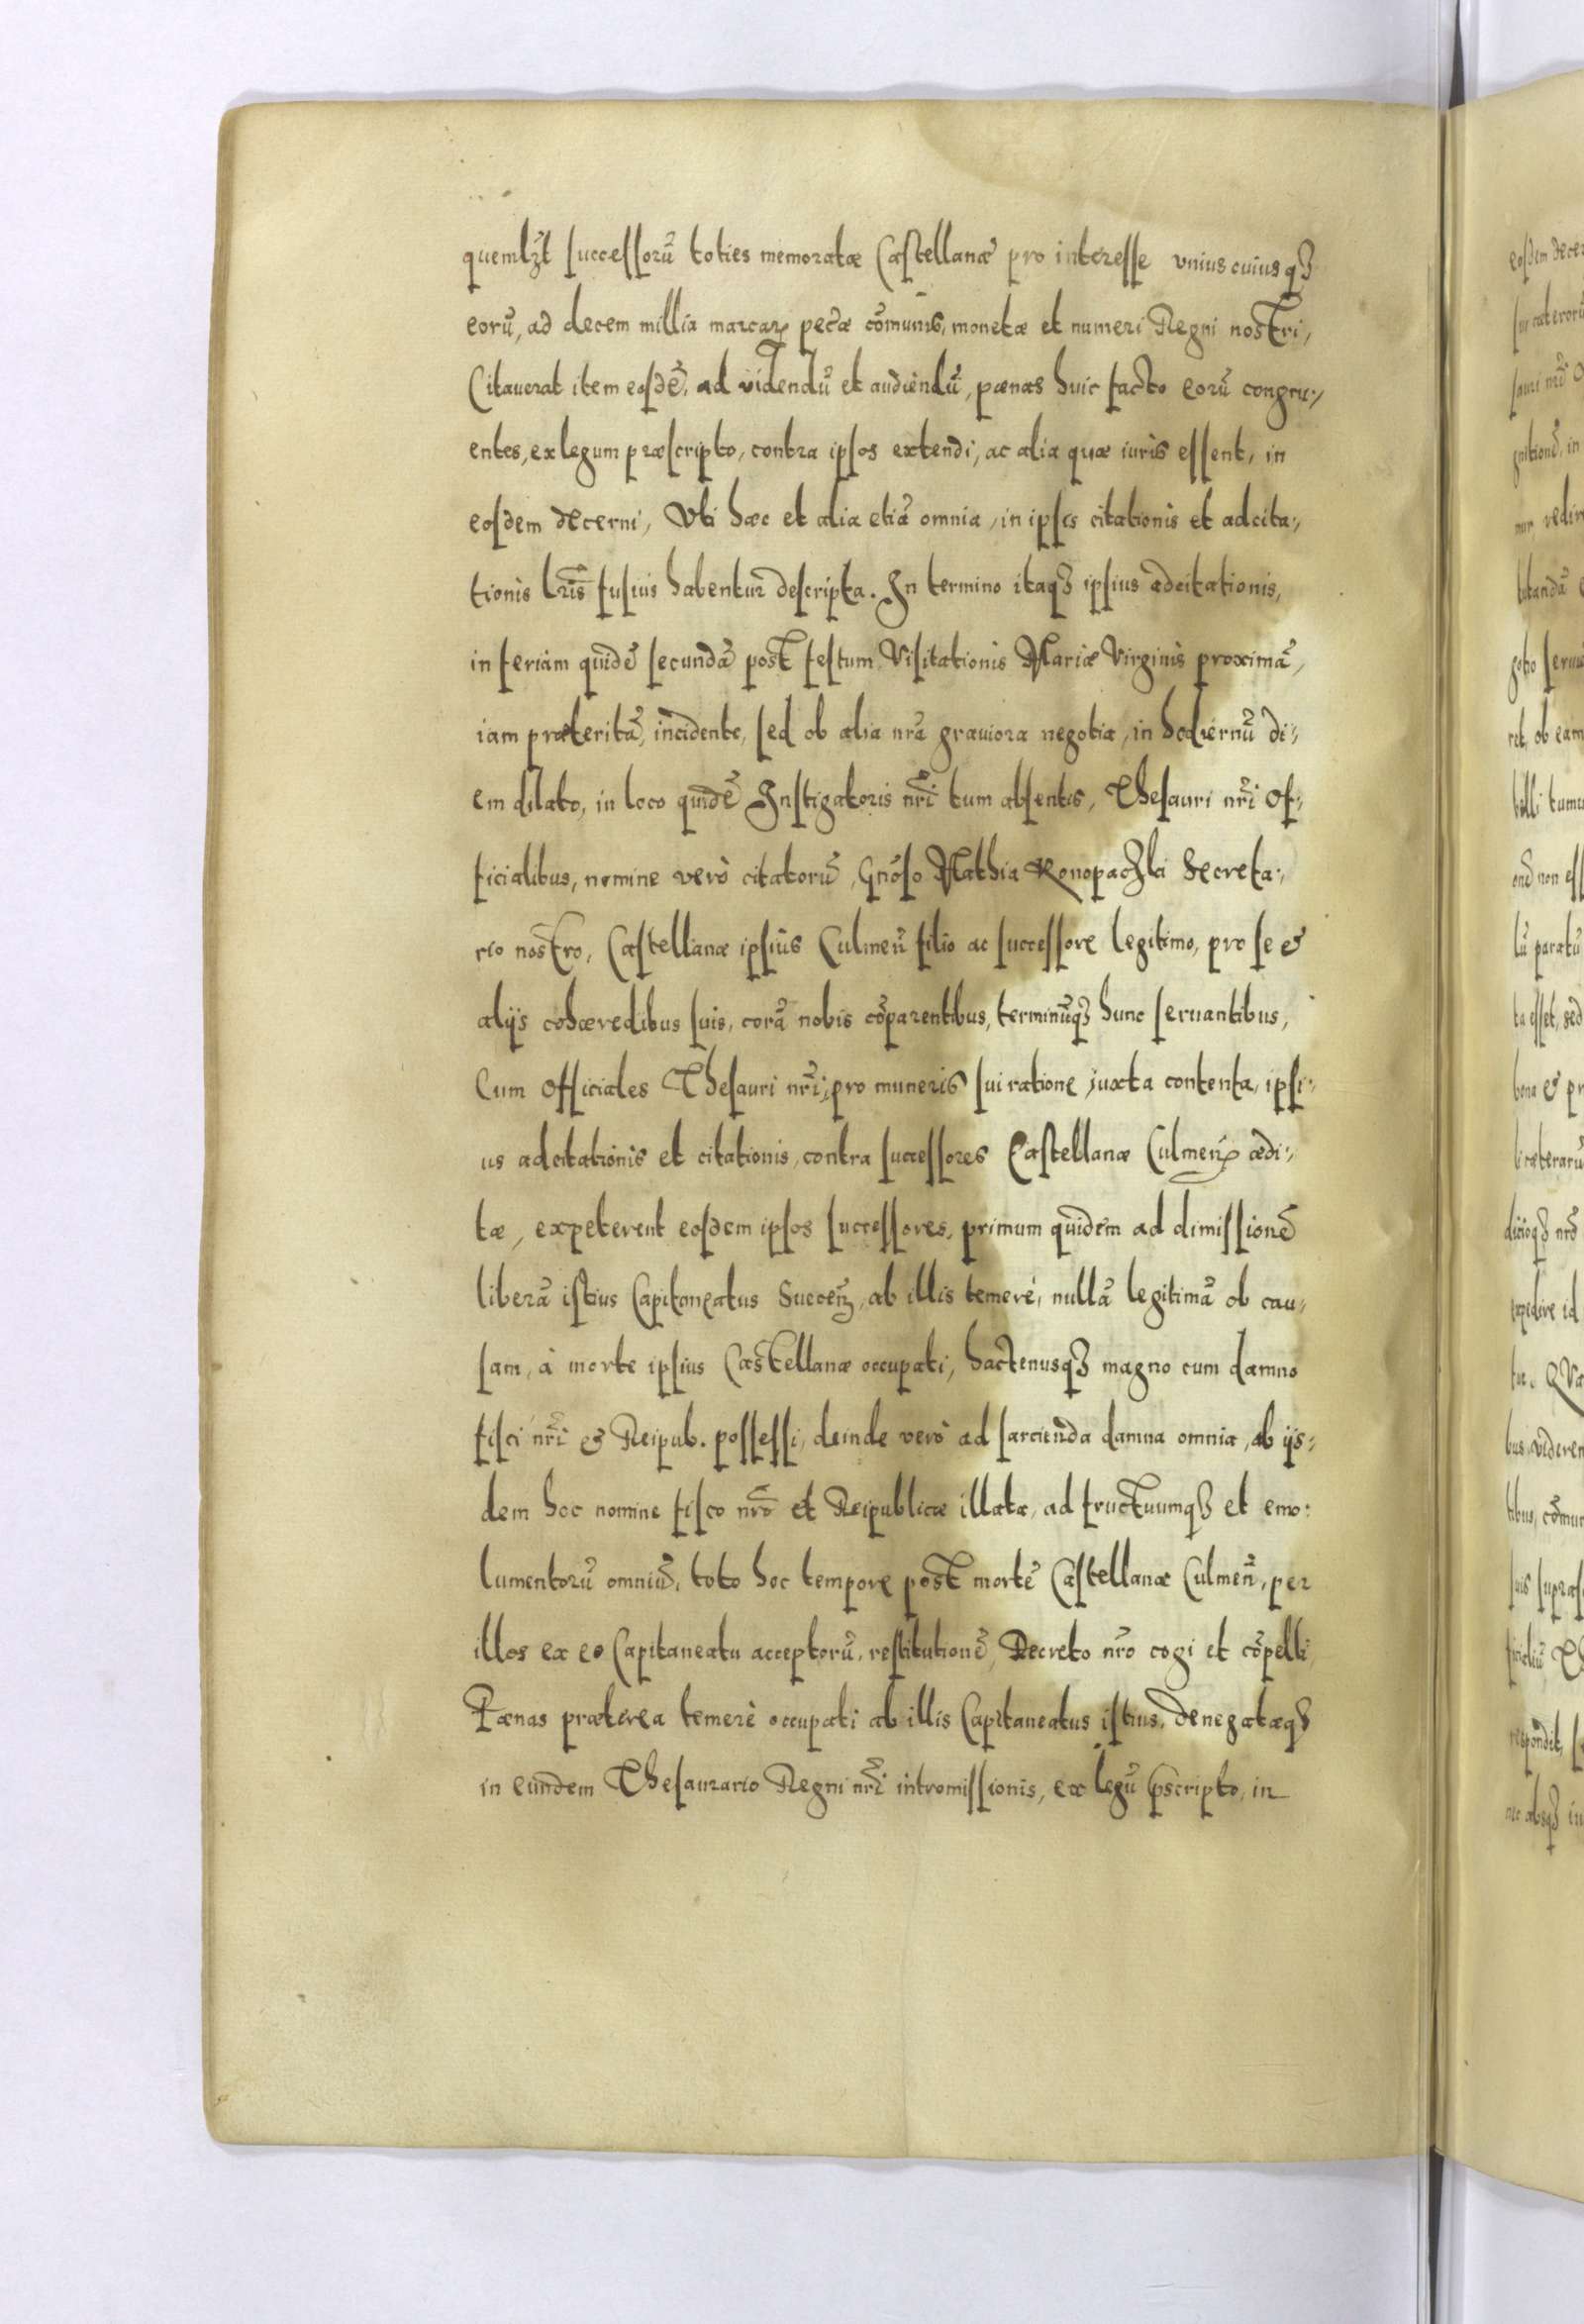 quemlꝫt successorũ toties memoratæ Castellanæ pro interesse vnius cuiusqȝ
eorũ, ad decem millia marcaꝝ pecæ cõmunis, monetæ et numeri Regni nostri,
Citauerat item eosdẽ, ad videndũ et audiendũ, pænas huic facto eorũ congru:
entes, ex legum præscripto, contra ipsos extendi, ac alia quæ iuris essent, in
eosdem decerni, Vti hæc et alia etiã omnia, in ipsis citationis et adcita:
tionis lr̃is fusius habentur descripta. In termino itaqȝ ipsius adcitationis,
in feriam quidẽ secundã post festum Visitationis Mariæ Virginis proximã,
iam præteritã, incidente, sed ob alia nr̃a grauiora negotia, in hodiernũ di:
em dilato, in loco quidẽ Instigatoris nr̃i tum absentis, Thesauri nr̃i Of:
ficialibus, nomine verò citatorũ, Gñoso Mathia Konopaczki Secreta:
rio nostro, Castellanæ ipsius Culmeñ filio ac successore legitimo, pro se et
alijs cohæredibus suis, corã nobis cõparentibus, terminũqȝ hunc seruantibus,
Cum Officiales Thesauri nr̃i, pro muneris sui ratione juxta contenta, ipsi:
us adcitationis et citationis, contra successores Castellanæ Culmeñ ædi:
tæ, expeterent eosdem ipsos successores, primum quidem ad dimissionẽ
liberã istius Capitaneatus Sueceñ, ab illis temerè, nullã legitimã ob cau:
sam, à morte ipsius Castellanæ occupati, hactenusqȝ magno cum damno
fisci nr̃i et Reipub. possessi, deinde verò ad sarcienda damna omnia, ab ijs:
dem hoc nomine fisco nr̃o et Reipublicæ illata, ad fructuumqȝ et emo:
lumentorũ omniũ, toto hoc tempore post mortẽ Castellanæ Culmeñ, per
illos ex eo Capitaneatu acceptorũ, restitutionẽ, Decreto nr̃o cogi et cõpelli,
Pænas præterea temerè occupati ab illis Capitaneatus istius, denegatæqȝ
in eundem Thesaurario Regni nr̃i intromissionis, ex legũ p̃scripto, in